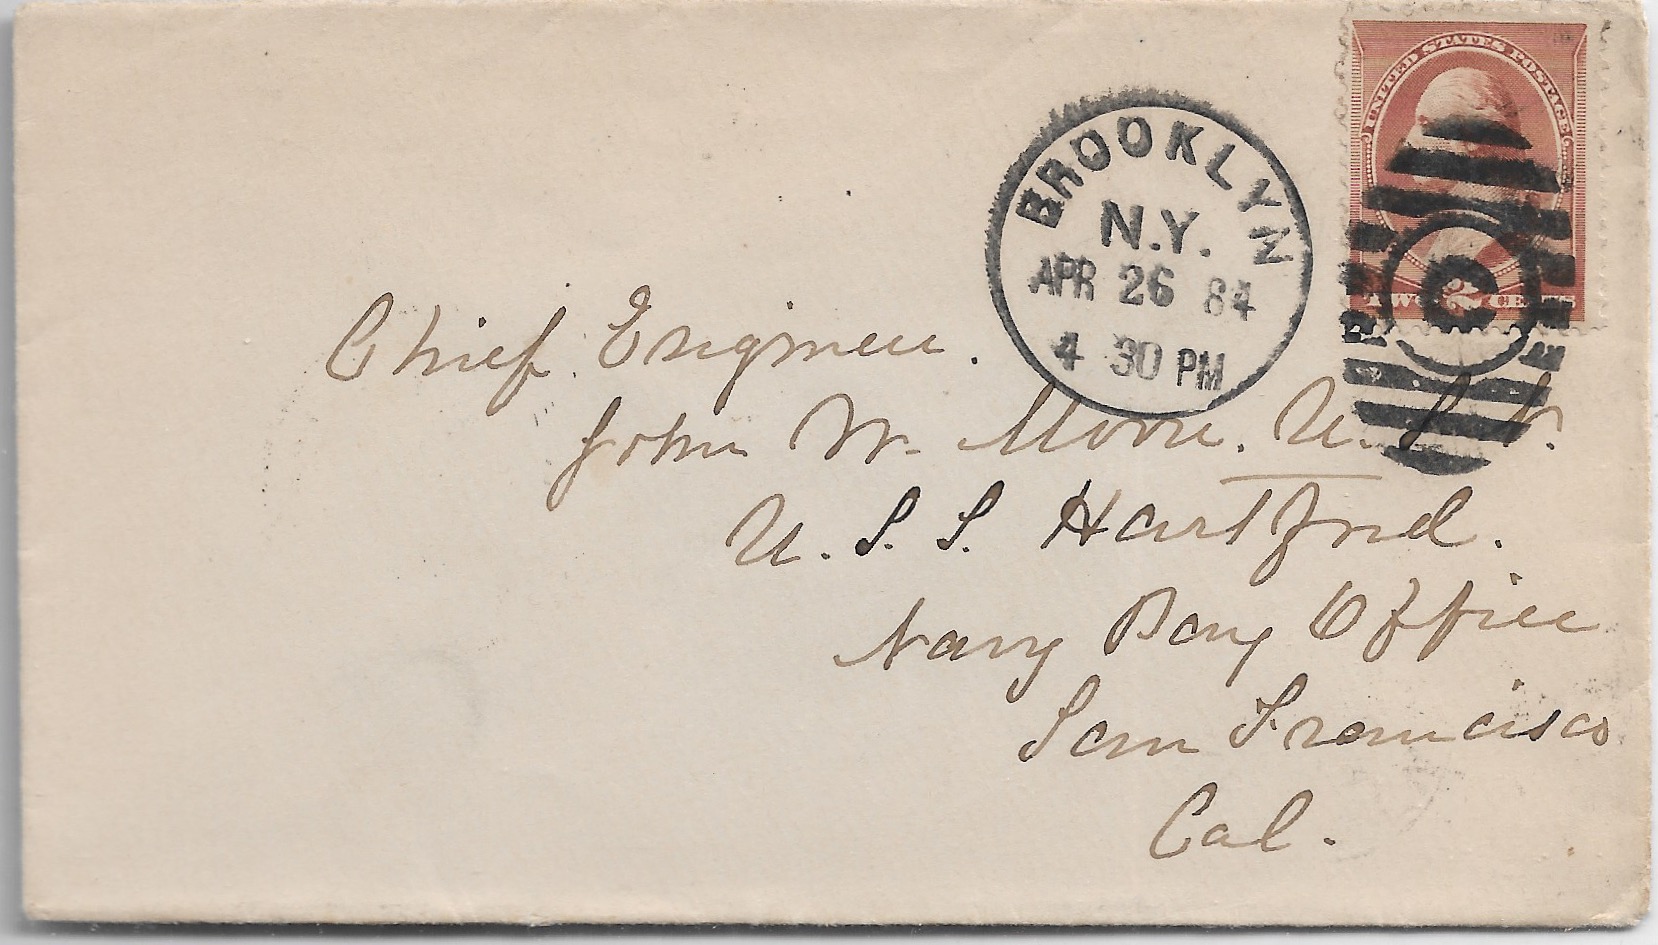 UNITED STATES POSTAGE
TWO 2 CENTS
C
BROOKLYN
N.Y.
APR 26 84
4 30 PM
Chief Engineer.
John W. Moore. U.S.N.
U. S. S. Hartford.
Navy Pay Office
San Francisco
Cal.